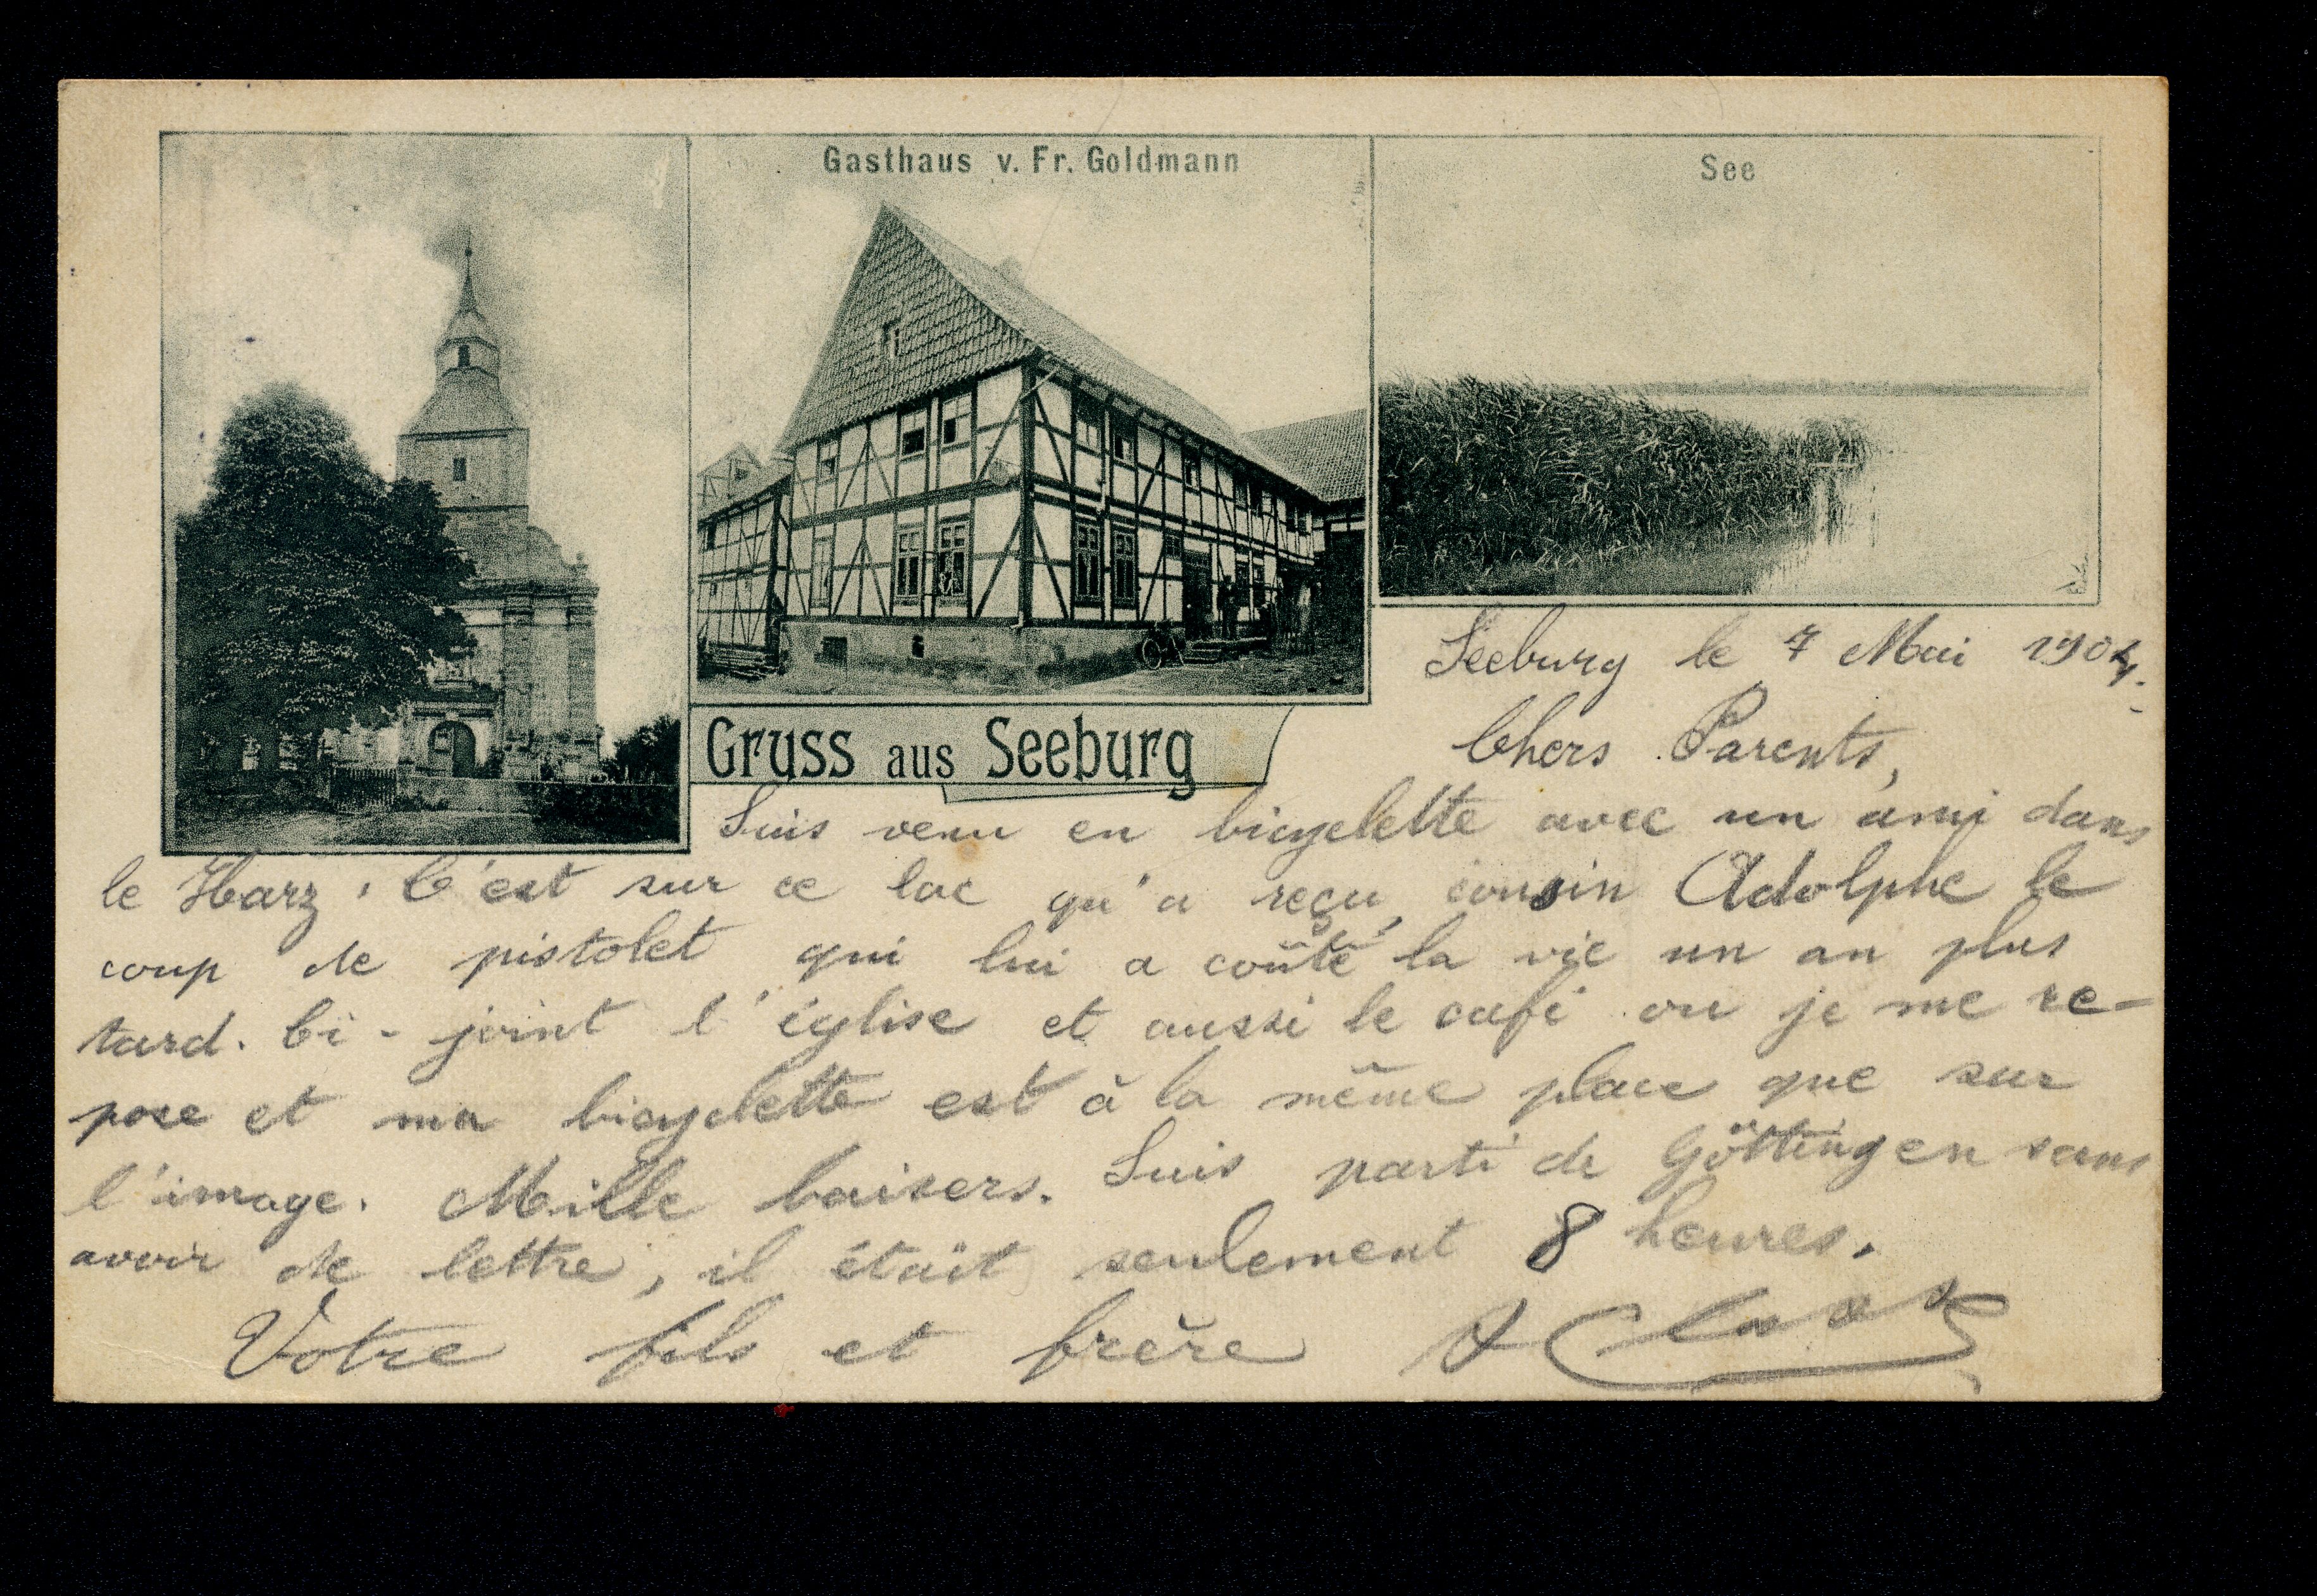 Gasthaus v. Fr. Goldmann
See
Gruss aus Seeburg
Seeburg le 7 Mai 1904.
Chers Parents,
Suis venu en bicyclette avec un ami dans
le Harz. C'est sur ce lac qu'a reçu cousin Adolphe le
coup de pistolet qui lui a coûté la vie un an plus
tard. Ci-joint l'église et aussi le café ou je me re-
pose et ma bicyclette est à la même place que sur
l'image. Mille baisers. Suis parti de Göttingen sans
avoir de lettre, il était seulement 8 heures.
Votre fils et frère